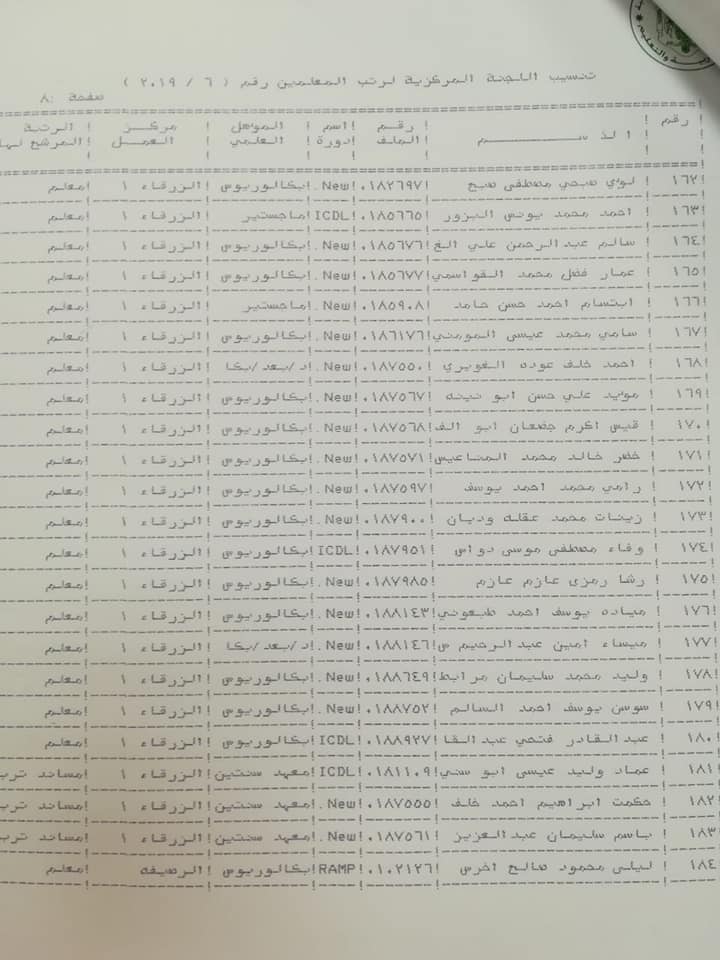 تنسيب اللجنة المركزية لرتب المعلمين رقم ( ٦ / ٢٠١٩ )
صفحة :٨
رقم ! الاسم ! رقم ! اسم ! المؤهل ! مركز ! الرتبة
! الملف ! دورة ! العلمي ! العمل ! المرشح لها
١٦٢ ! لؤي صبحي مصطفى صبح !٠١٨٢٦٩٧ !New. !بكالوريوس !الزرقاء ١ !معلم
١٦٣ ! احمد محمد يونس البزور !٠١٨٥٦٦٥ !ICDL !ماجستير !الزرقاء ١ !معلم
١٦٤ ! سالم عبدالرحمن علي الغ !٠١٨٥٦٧٦ !New. !بكالوريوس !الزرقاء ١ !معلم
١٦٥ ! عمار فضل محمد القواسمي !٠١٨٥٦٧٧ !New. !بكالوريوس !الزرقاء ١ !معلم
١٦٦ ! ابتسام احمد حسن حامد !٠١٨٥٩٠٨ !New. !ماجستير !الزرقاء ١ !معلم
١٦٧ ! سامي محمد عيسى المومني !٠١٨٦١٧٦ !New. !بكالوريوس !الزرقاء ١ !معلم
١٦٨ ! احمد خلف عوده الغويري !٠١٨٧٥٥٠ !New. !د/بعد/بكا !الزرقاء ١ !معلم
١٦٩ ! مؤيد علي حسن ابو !٠١٨٧٥٦٧ !New. !بكالوريوس !الزرقاء ١ !معلم
١٧٠ ! قيس اكرم جضعان ابو الف !٠١٨٧٥٦٨ !New. !بكالوريوس !الزرقاء ١ !معلم
١٧١ ! خضر خالد محمد المناعيس !٠١٨٧٥٧١ !New. !بكالوريوس !الزرقاء ١ !معلم
١٧٢ ! رامي محمد احمد يوسف !٠١٨٧٥٩٧ !New. !بكالوريوس !الزرقاء ١ !معلم
١٧٣ ! زينات محمد عقله وديان !٠١٨٧٩٠٠ !New. !بكالوريوس !الزرقاء ١ !معلم
١٧٤ ! وفاء مصطفى موسى دواس !٠١٨٧٩٥١ !ICDL !بكالوريوس !الزرقاء ١ !معلم
١٧٥ ! رشا رمزي عازم عازم !٠١٨٧٩٨٥ !New. !بكالوريوس !الزرقاء ١ !معلم
١٧٦ ! مياده يوسف احمد طبعوني !٠١٨٨١٤٣ !New. !بكالوريوس !الزرقاء ١ !معلم
١٧٧ ! ميساء امين عبدالرحيم ص !٠١٨٨١٤٦ !New. !د/بعد/بكا !الزرقاء ١ !معلم
١٧٨ ! وليد محمد سليمان مرابط !٠١٨٨٦٤٩ !New. !بكالوريوس !الزرقاء ١ !معلم
١٧٩ ! سوسن يوسف احمد السالم !٠١٨٨٧٥٢ !New. !بكالوريوس !الزرقاء ١ !معلم
١٨٠ ! عبدالقادر فتحي عبدالقا !٠١٨٨٩٢٧ !ICDL !بكالوريوس !الزرقاء ١ !معلم
١٨١ ! عماد وليد عيسى ابو سني !٠١٨١١٠٩ !ICDL !معهد سنتين !الزرقاء ١ !مساند ترب
١٨٢ ! حكمت ابراهيم احمد خلف !٠١٨٧٥٥٥ !New. !معهد سنتين !الزرقاء ١ !مساند ترب
١٨٣ ! باسم سليمان عبدالعزيز !٠١٨٧٥٦١ !New. !معهد سنتين !الزرقاء ١ !مساند ترب
١٨٤ ! ليلى محمود صالح اخرس !٠١٠٢١٢٦ !RAMP !بكالوريوس !الرصيفه !معلم